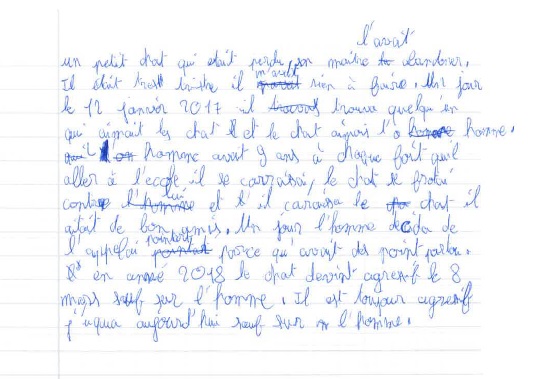 l'avait
un petit chat qui était perdu, son maître alandoner.
Il était trest tristre il m'avait rien à faire. Un jour
le 12 janvier 2017 il trouva quelqu'un
qui aimait les chat et le chat aimais l'o homme.
l'homme avait 9 ans à chaque fort qu'il
aller à l'ecole il se carraisai, le chat se frotai
contre lui et il caraisse le chat il
aitait de bon amis. Un jour l'homme decida de
l'appelai pointars parce qu'avait des point partou.
en anné 2018 le chat devint agresif le 8
mars sauf sur l'homme. Il est toujour agresif
j'uqua aujourd'hui sauf sur l'homme.